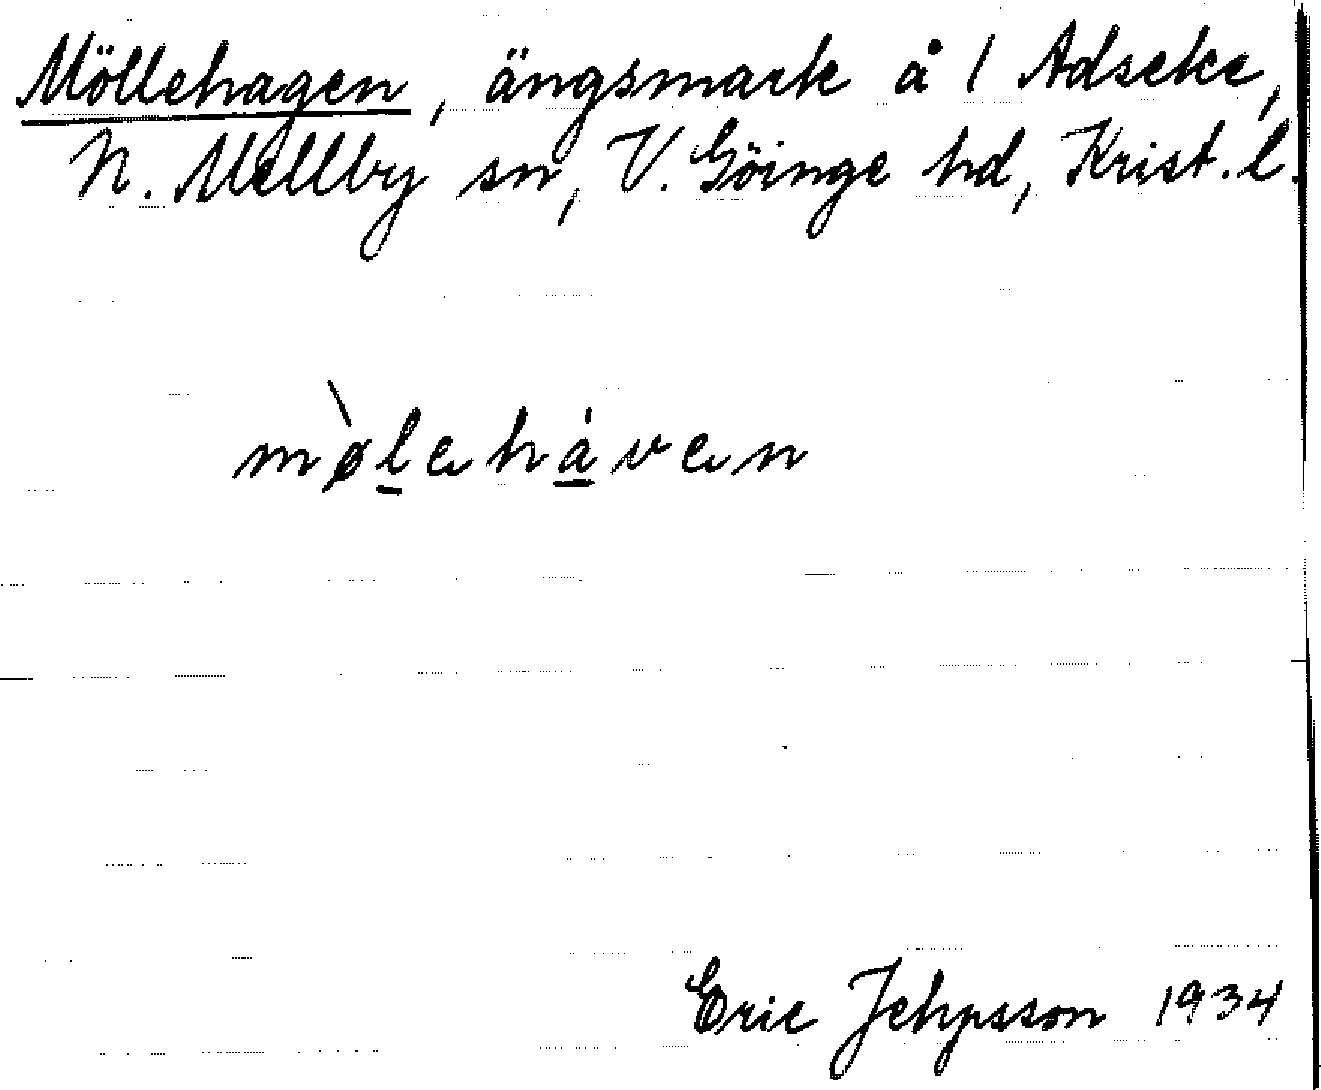 Möllehagen, ängsmark å 1 Adseke,
N. Mellby sn, V. Göinge hd, Krist. l.
mø̀leháven
Eric Jehpsson 1934